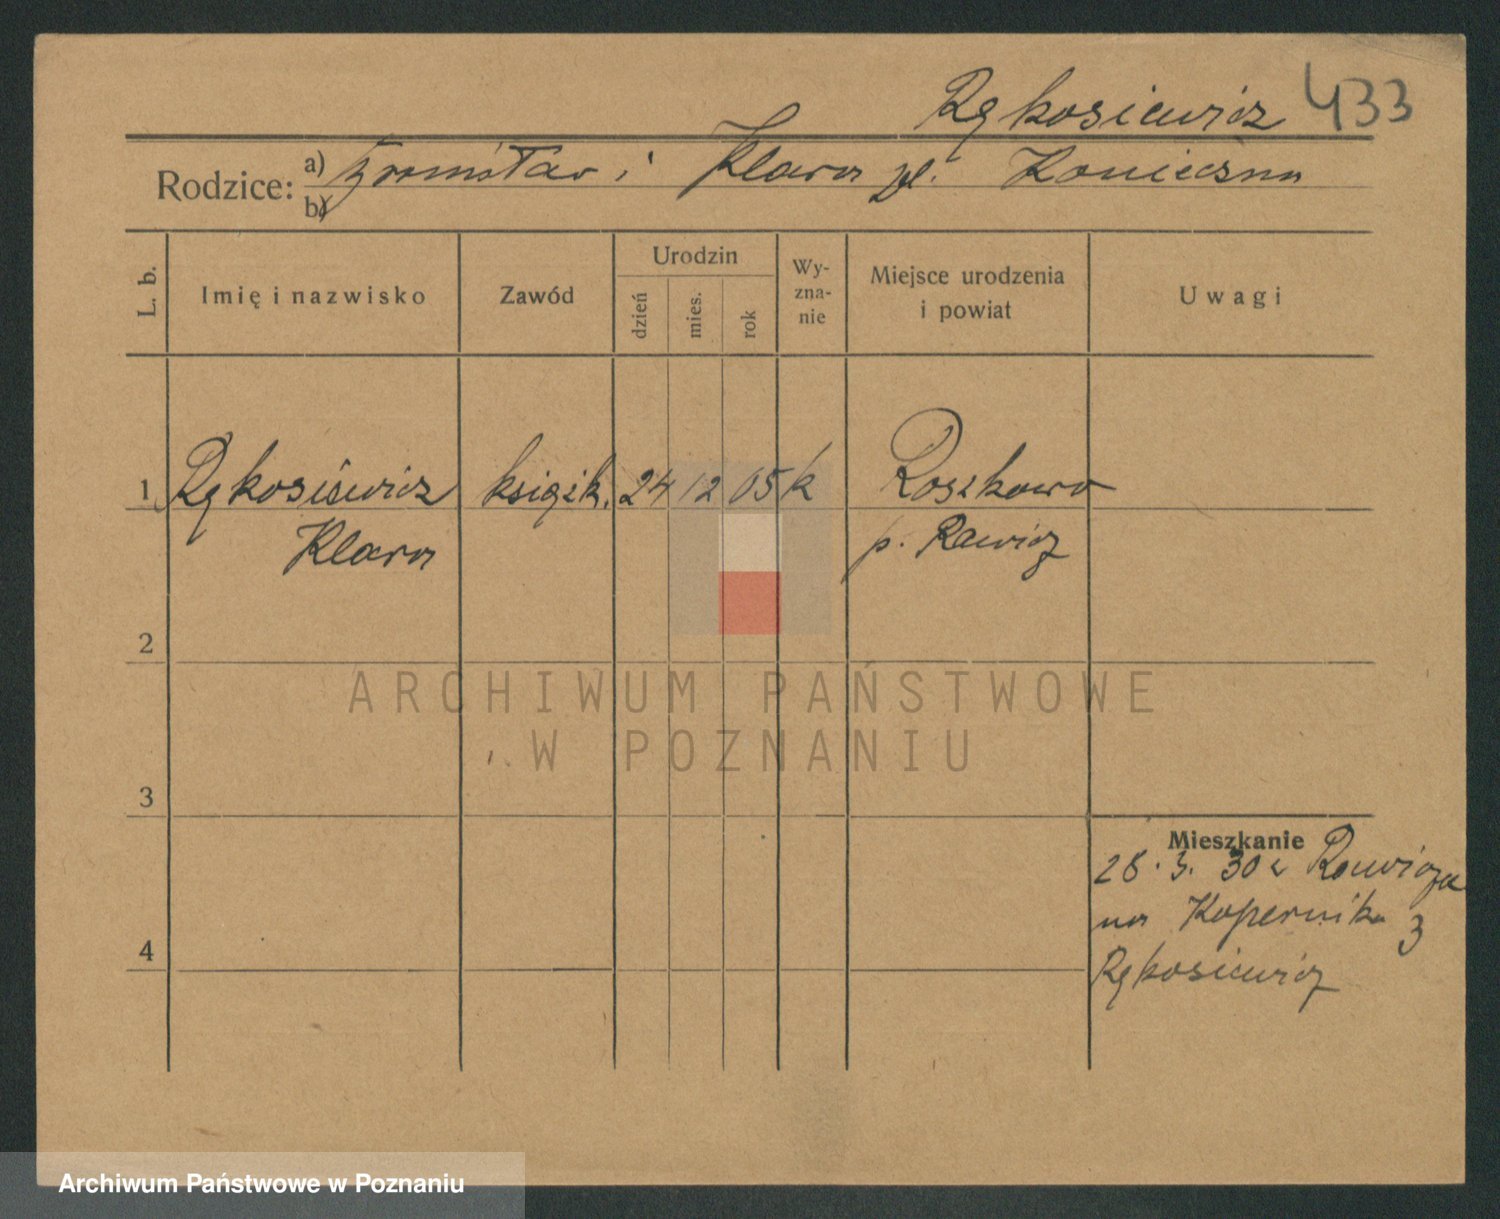 Rękosiewicz 433
Rodzice: a) Bronisław i Klara zd. Konieczna
b)
L. b. Imię i nazwisko Zawód Urodzin dzień mies. rok Wy-zna-nie Miejsce urodzenia i powiat Uwagi
1 Rękosiewicz książk. 24 12 05 k Roszkowo
Klara p. Rawicz
2
ARCHIWUM PAŃSTWOWE
W POZNANIU
3
Mieszkanie
28. 3. 30 z Rawicza
4 na Kopernika 3
Rękosiewicz
Archiwum Państwowe w Poznaniu